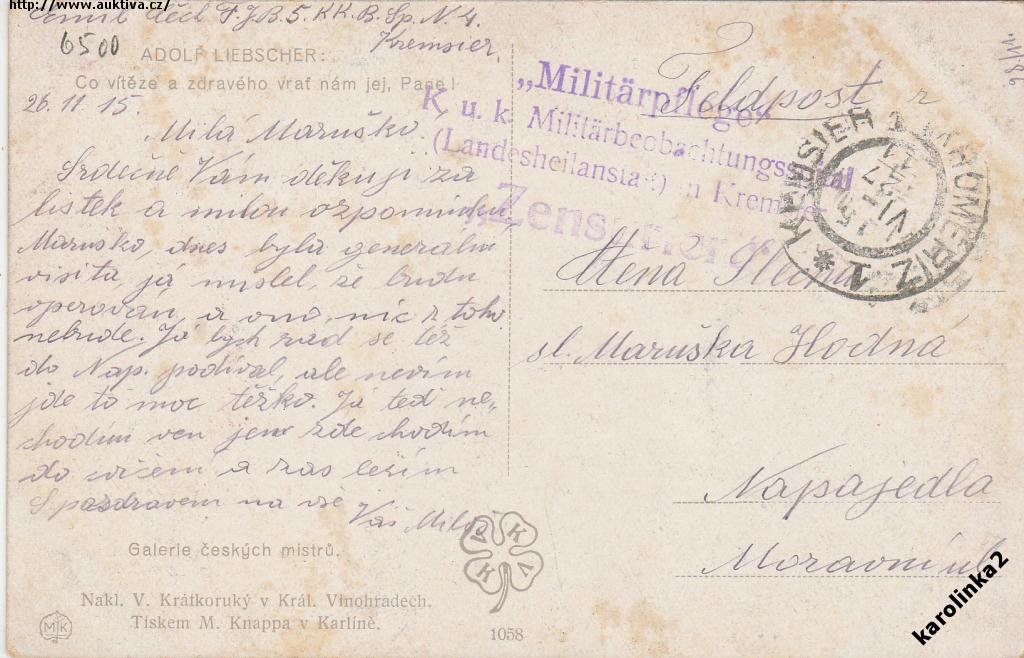 http://www.auktiva.cz/
Čech F.J.B. 5. K.K.B. Sp. N. 4.
Kremsier.
6500
ADOLF LIEBSCHER:
Co vítěze a zdravého vrať nám jej, Pane!
26. 11. 15.
Milá Maruško.
Srdečně Vám děkuji za
lístek a milou vzpomínku,
Maruško, dnes byla generální
visita, já myslel, že budu
operován, a ono, nic z toho
nebude. Já bych rád se též
do Nap. podíval, ale nevím
jde to moc těžko. Já teď ne„
chodím ven jen zde chodím
do cvičení a zas ležím
S pozdravem na vše
Váš
Galerie českých mistrů.
Nakl. V. Krátkoruký v Král. Vinohradech.
Tiskem M. Knappa v Karlíně.
MK
V K
K V
1058
Feldpost
„Militärpflege“
K. u. k. Militärbeobachtungsspital
(Landesheilanstalt) in Kremsier
„Zensuriert“
KREMSIER 1 KROMĚŘÍŽ 1
Ctěná Slečna
sl. Maruška Hodná
Napajedla
Moravní ul.
karolinka2